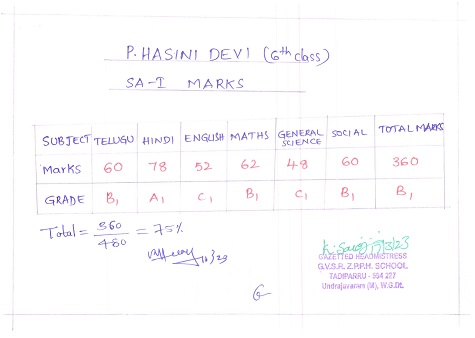 P. HASINI DEVI (6th class)
SA-I MARKS
SUBJECT TELUGU HINDI ENGLISH MATHS GENERAL SCIENCE SOCIAL TOTAL MARKS
Marks 60 78 52 62 48 60 360
GRADE B1 A1 C1 B1 C1 B1 B1
Total = 360/480 = 75%
GAZETTED HEADMISTRESS
G.V.S.R. Z.P.P.H. SCHOOL
TADIPARRU - 534 227
Undrajavaram (M), W.G.Dt.